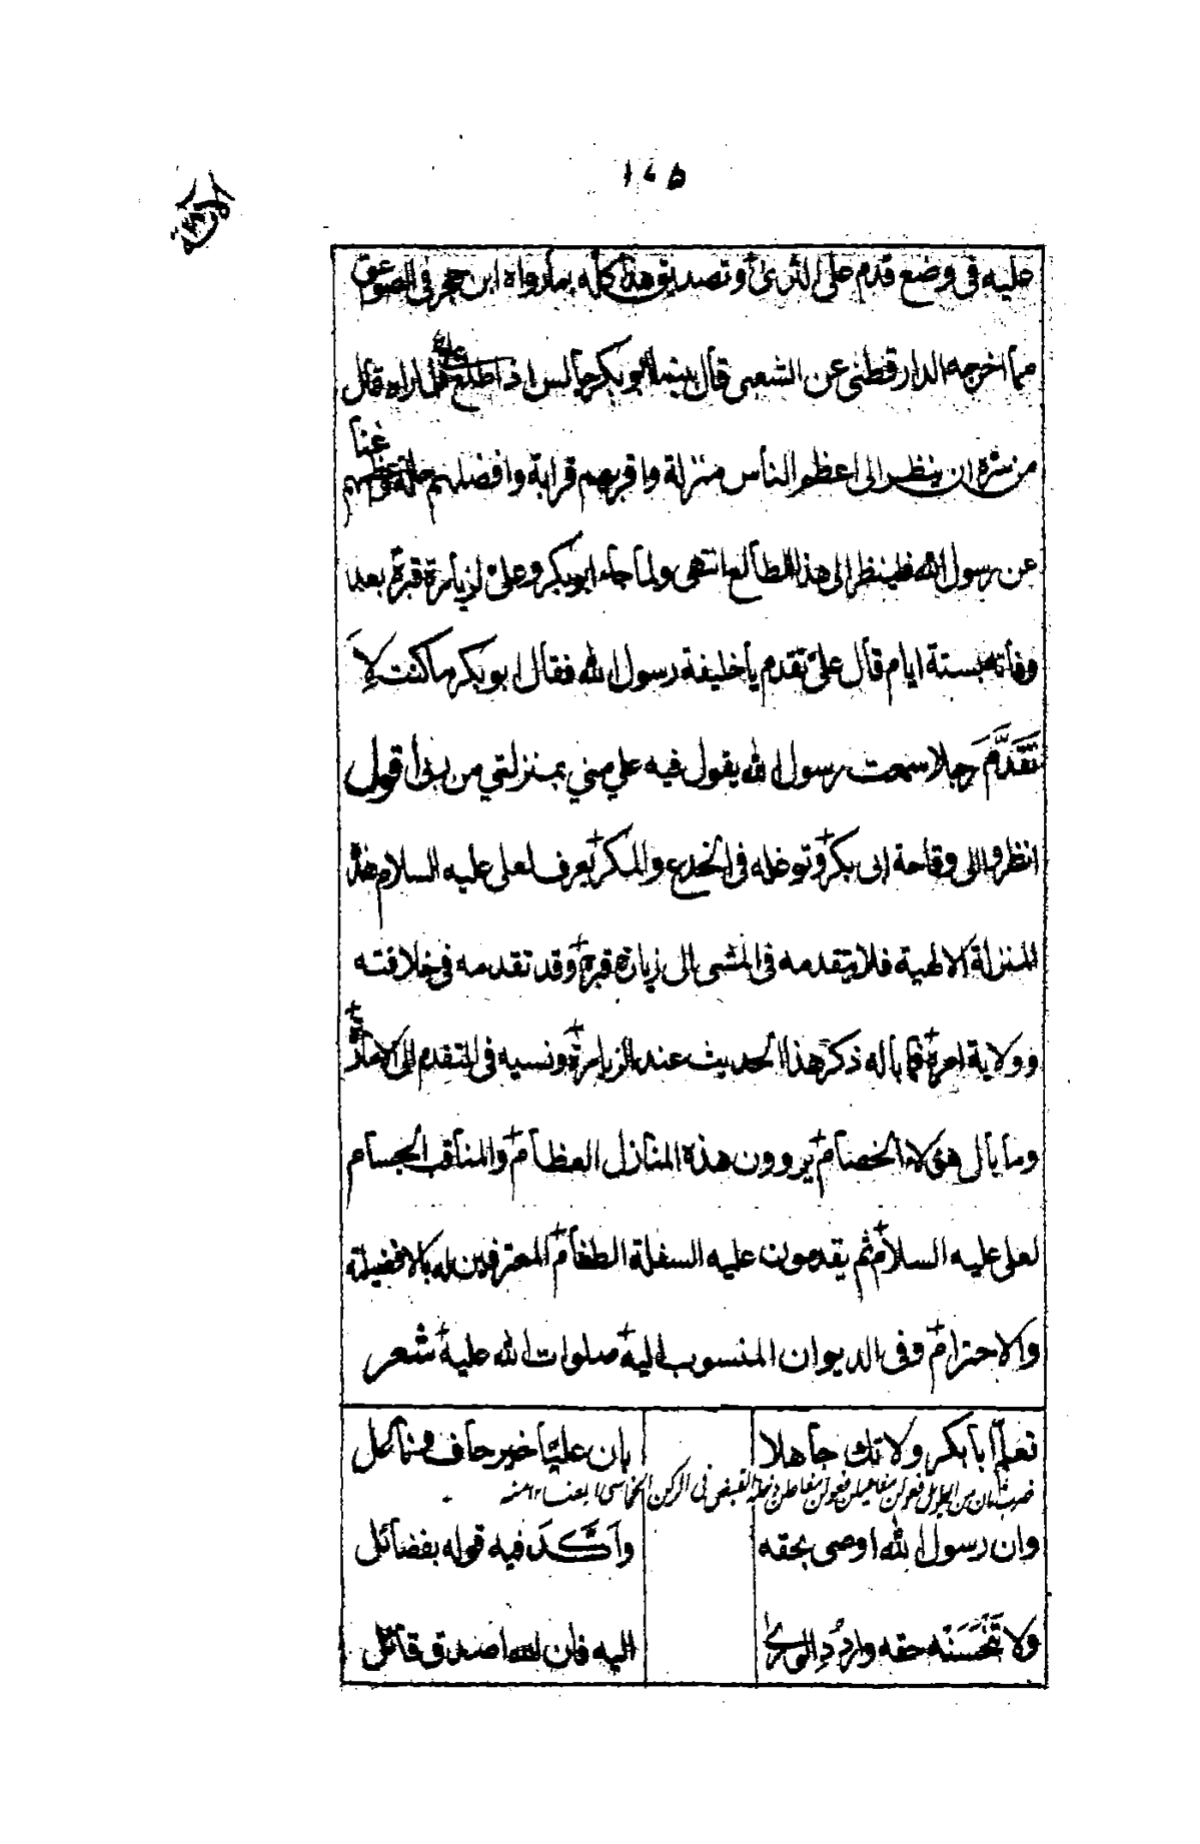 ١٤٥
عليه في وضع قدم على الثرى أو تصديق هذا كله بما رواه ابن حجر في الصواعق
مما اخرجه الدارقطني عن الشعبي قال بينما أبو بكر جالس اذ اطلع علي فلما راه قال
من سره ان ينظر الى اعظم الناس منزلة واقربهم قرابة وافضلهم حالة واعظمهم غناً
عن رسول الله فلينظر الى هذا الطالع انتهى ولما جاء ابو بكر وعلي لزيارة قبره بعد
وفاته بستة ايام قال علي تقدم يا خليفة رسول الله فقال ابو بكر ما كنت لاَ
تَقَدَّمَ رجلا سمعت رسول الله يقول فيه علي مني بمنزلتي من ربى اقول
انظروا الى وقاحة ابى بكر وتوغله في الخدع والمكر يعرف لعلى عليه السلام هذه
المنزلة الالهية فلا يتقدمه في المشى الى زيارة قبره وقد تقدمه في خلافته
وولاية امره فما باله ذكر هذا الحديث عند الزيارة ونسيه في التقدم الى الامارة
وما بال هؤلاء الخصام يروون هذه المنازل العظام والمناقب الجسام
لعلى عليه السلام ثم يقدمون عليه السفلة الطغام المعترفين له بالافضيلة
والاحترام وفى الديوان المنسوب اليه صلوات الله عليه شعر
تعلم أبا بكر ولا تك جاهلا بان علياً خير حاف وناعل
وان رسول الله اوصى بحقه وأكَّدَ فيه قوله بفضائل
ولا تَبْخَسَنْه حقه واردُدِ الورى اليه فان الله اصدق قائل